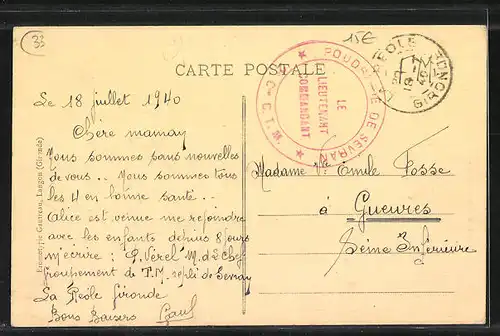 33
15€
CARTE POSTALE
POUDRERIE DE SEVRAN
LE
LIEUTENANT
COMMANDANT
LA REOLE
GIRONDE
Le 18 juillet 1940
Chère mamay
Nous sommes sans nouvelles
de vous.. Nous sommes tous
les 4 en bonne santé...
Alice est venue me rejoindre
avec les enfants depuis 8 jours
m'écrire : P. Verel M. d2 chef
Groupement de P.M. repli de Sevran
La Réole Gironde
Bons Baisers Paul
Madame Vve Emile Fosse
à Gueures
Seine Inférieure
Langon (Gironde)